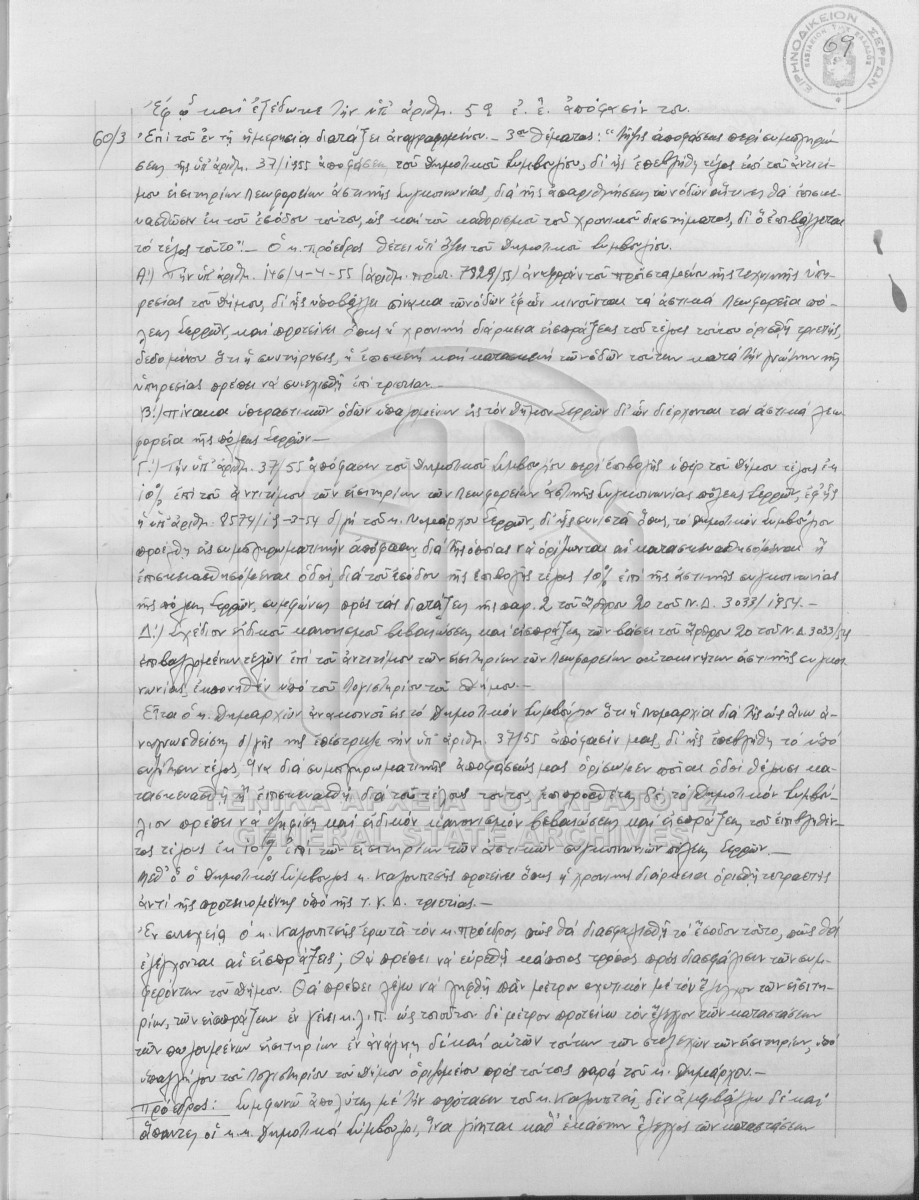 ΕΙΡΗΝΟΔΙΚΕΙΟΝ ΣΕΡΡΩΝ
69
Ἐφ' ᾧ καὶ ἐξέδωκε τὴν ὑπ' ἀριθμ. 59 ἐ. ἔ. ἀπόφασίν του.
60/3 Ἐπὶ τοῦ ἐν τῇ ἡμερησίᾳ διατάξει ἀναγραφομένου.- 3ου θέματος: "Λῆψις ἀποφάσεως περὶ συμπληρώ-
σεως τῆς ὑπ' ἀριθμ. 37/1955 ἀποφάσεως τοῦ Δημοτικοῦ Συμβουλίου, δι' ἧς ἐπεβλήθη τέλος ἐπὶ τοῦ ἀντιτί-
μου εἰσιτηρίων Λεωφορείων ἀστικῆς συγκοινωνίας, διὰ τῆς ἀπαριθμήσεως τῶν ὁδῶν αἵτινες θὰ ἐπισκευ-
ασθῶσιν ἐκ τοῦ ἐσόδου τούτου, ὡς καὶ τοῦ καθορισμοῦ τοῦ χρονικοῦ διαστήματος, δι' ὃ ἐπιβάλλεται
τὸ τέλος τοῦτο".- Ὁ κ. Πρόεδρος θέτει ὑπ' ὄψει τοῦ Δημοτικοῦ Συμβουλίου.
Α') Τὴν ὑπ' ἀριθμ. 146/4-4-55 (ἀριθμ. πρωτ. 7329/55) ἀναφορὰν τοῦ προϊσταμένου τῆς τεχνικῆς ὑπη-
ρεσίας τοῦ Δήμου, δι' ἧς ὑποβάλλει πίνακα τῶν ὁδῶν ἐφ' ὧν κινοῦνται τὰ ἀστικὰ Λεωφορεῖα πό-
λεως Σερρῶν, καὶ προτείνει ὅπως ἡ χρονικὴ διάρκεια εἰσπράξεως τοῦ τέλους τούτου ὁρισθῇ τριετής,
δεδομένου ὅτι ἡ συντήρησις, ἡ ἐπισκευὴ καὶ κατασκευὴ τῶν ὁδῶν τούτων κατὰ τὴν γνώμην τῆς
ὑπηρεσίας πρέπει να συνεχισθῇ ἐπὶ τριετίαν.-
Β') Πίνακα ὑπεραστικῶν ὁδῶν ὑπαγομένων εἰς τὸν Δῆμον Σερρῶν δι' ὧν διέρχονται τὰ ἀστικὰ λεω-
φορεῖα τῆς πόλεως Σερρῶν.-
Γ') Τὴν ὑπ' ἀριθμ. 37/55 ἀπόφασιν τοῦ Δημοτικοῦ Συμβουλίου περὶ ἐπιβολῆς ὑπὲρ τοῦ Δήμου τέλους ἐκ
10% ἐπὶ τοῦ ἀντιτίμου τῶν εἰσιτηρίων τῶν Λεωφορείων ἀστικῆς συγκοινωνίας πόλεως Σερρῶν, ἐφ' ἧς
ἡ ὑπ' ἀριθμ. δ/γὴ τοῦ κ. Νομάρχου Σερρῶν, δι' ἧς συνιστᾷ ὅπως, τὸ Δημοτικὸν Συμβούλιον
προέλθῃ εἰς συμπληρωματικὴν ἀπόφασιν, διὰ τῆς ὁποίας νὰ ὁρίζωνται αἱ κατασκευασθησόμεναι ἢ
ἐπισκευασθησόμεναι ὁδοί, διὰ τοῦ ἐσόδου τῆς ἐπιβολῆς τέλους 10% ἐπὶ τῆς ἀστικῆς συγκοινωνίας
τῆς πόλεως Σερρῶν, συμφώνως πρὸς τὰς διατάξεις τῆς παρ. 2 τοῦ ἄρθρου 20 τοῦ Ν.Δ. 3033/1954.-
Δ') Σχέδιον εἰδικοῦ κανονισμοῦ βεβαιώσεως καὶ εἰσπράξεως τῶν βάσει τοῦ ἄρθρου 20 τοῦ Ν.Δ. 3033/54
ἐπιβαλλομένων τελῶν ἐπὶ τοῦ ἀντιτίμου τῶν εἰσιτηρίων τῶν Λεωφορείων αὐτοκινήτων ἀστικῆς συγκοι-
νωνίας, ἐκπονηθὲν ὑπὸ τοῦ Λογιστηρίου τοῦ Δήμου.-
Εἶτα ὁ κ. Δημαρχῶν ἀνακοινοῖ εἰς τὸ Δημοτικὸν Συμβούλιον ὅτι ἡ Νομαρχία διὰ τῆς ὡς ἄνω ἀ-
ναγνωσθείσης δ/γῆς της ἐπέστρεψε τὴν ὑπ' ἀριθμ. 37/55 ἀπόφασίν μας, δι' ἧς ἐπεβλήθη τὸ ὑπὸ
συζήτησιν τέλος, ἵνα διὰ συμπληρωματικῆς ἀποφάσεώς μας ὁρίσωμεν ποῖαι ὁδοὶ θέλουσι κα-
τασκευασθῇ ἢ ἐπισκευασθῇ διὰ τοῦ τέλους τούτου, ἐπιπροσθέτως δὲ τὸ Δημοτικὸν Συμβού-
λιον πρέπει νὰ ψηφίσῃ καὶ εἰδικὸν κανονισμὸν βεβαιώσεως καὶ εἰσπράξεως τοῦ ἐπιβληθέν-
τος τέλους ἐκ 10% ἐπὶ τῶν εἰσιτηρίων τῶν ἀστικῶν συγκοινωνιῶν πόλεως Σερρῶν.-
Μεθ' ὃ ὁ Δημοτικὸς Σύμβουλος κ. Καλοπτσῆς προτείνει ὅπως ἡ χρονικὴ διάρκεια ὁρισθῇ τετραετὴς
ἀντὶ τῆς προτεινομένης ὑπὸ τῆς Τ.Υ.Δ. τριετίας.-
Ἐν συνεχείᾳ ὁ κ. Καλοπτσῆς ἐρωτᾷ τὸν κ. Πρόεδρον πῶς θὰ διασφαλισθῇ τὸ ἔσοδον τοῦτο, πῶς θὰ
ἐλέγχονται αἱ εἰσπράξεις; Θὰ πρέπει νὰ εὑρεθῇ κάποιος τρόπος πρὸς διασφάλισιν τῶν συμ-
φερόντων τοῦ Δήμου. Θὰ πρέπει λέγω νὰ ληφθῇ πᾶν μέτρον σχετικὸν μὲ τὸν ἔλεγχον τῶν εἰσιτη-
ρίων, τῶν εἰσπράξεων ἐν γένει κ.λ.π. ὡς τοιοῦτον δὲ μέτρον προτείνω τὸν ἔλεγχον τῶν καταστάσεων
τῶν πωλουμένων εἰσιτηρίων ἐν ἀνάγκῃ δὲ καὶ αὐτῶν τούτων τῶν στελεχῶν τῶν εἰσιτηρίων, ὑπὸ
ὑπαλλήλου τοῦ Λογιστηρίου τοῦ Δήμου ὁριζομένου πρὸς τοῦτο παρὰ τοῦ κ. Δημάρχου.-
Πρόεδρος: Συμφωνῶ ἀπολύτως μὲ τὴν πρότασιν τοῦ κ. Καλοπτσῆ, δὲν ἀμφιβάλλω δὲ καὶ
ἅπαντες οἱ κ.κ. Δημοτικοὶ Σύμβουλοι, ἵνα γίνηται καθ' ἑκάστην ἔλεγχος τῶν καταστάσεων
ΓΕΝΙΚΑ ΑΡΧΕΙΑ ΤΟΥ ΚΡΑΤΟΥΣ
GENERAL STATE ARCHIVES